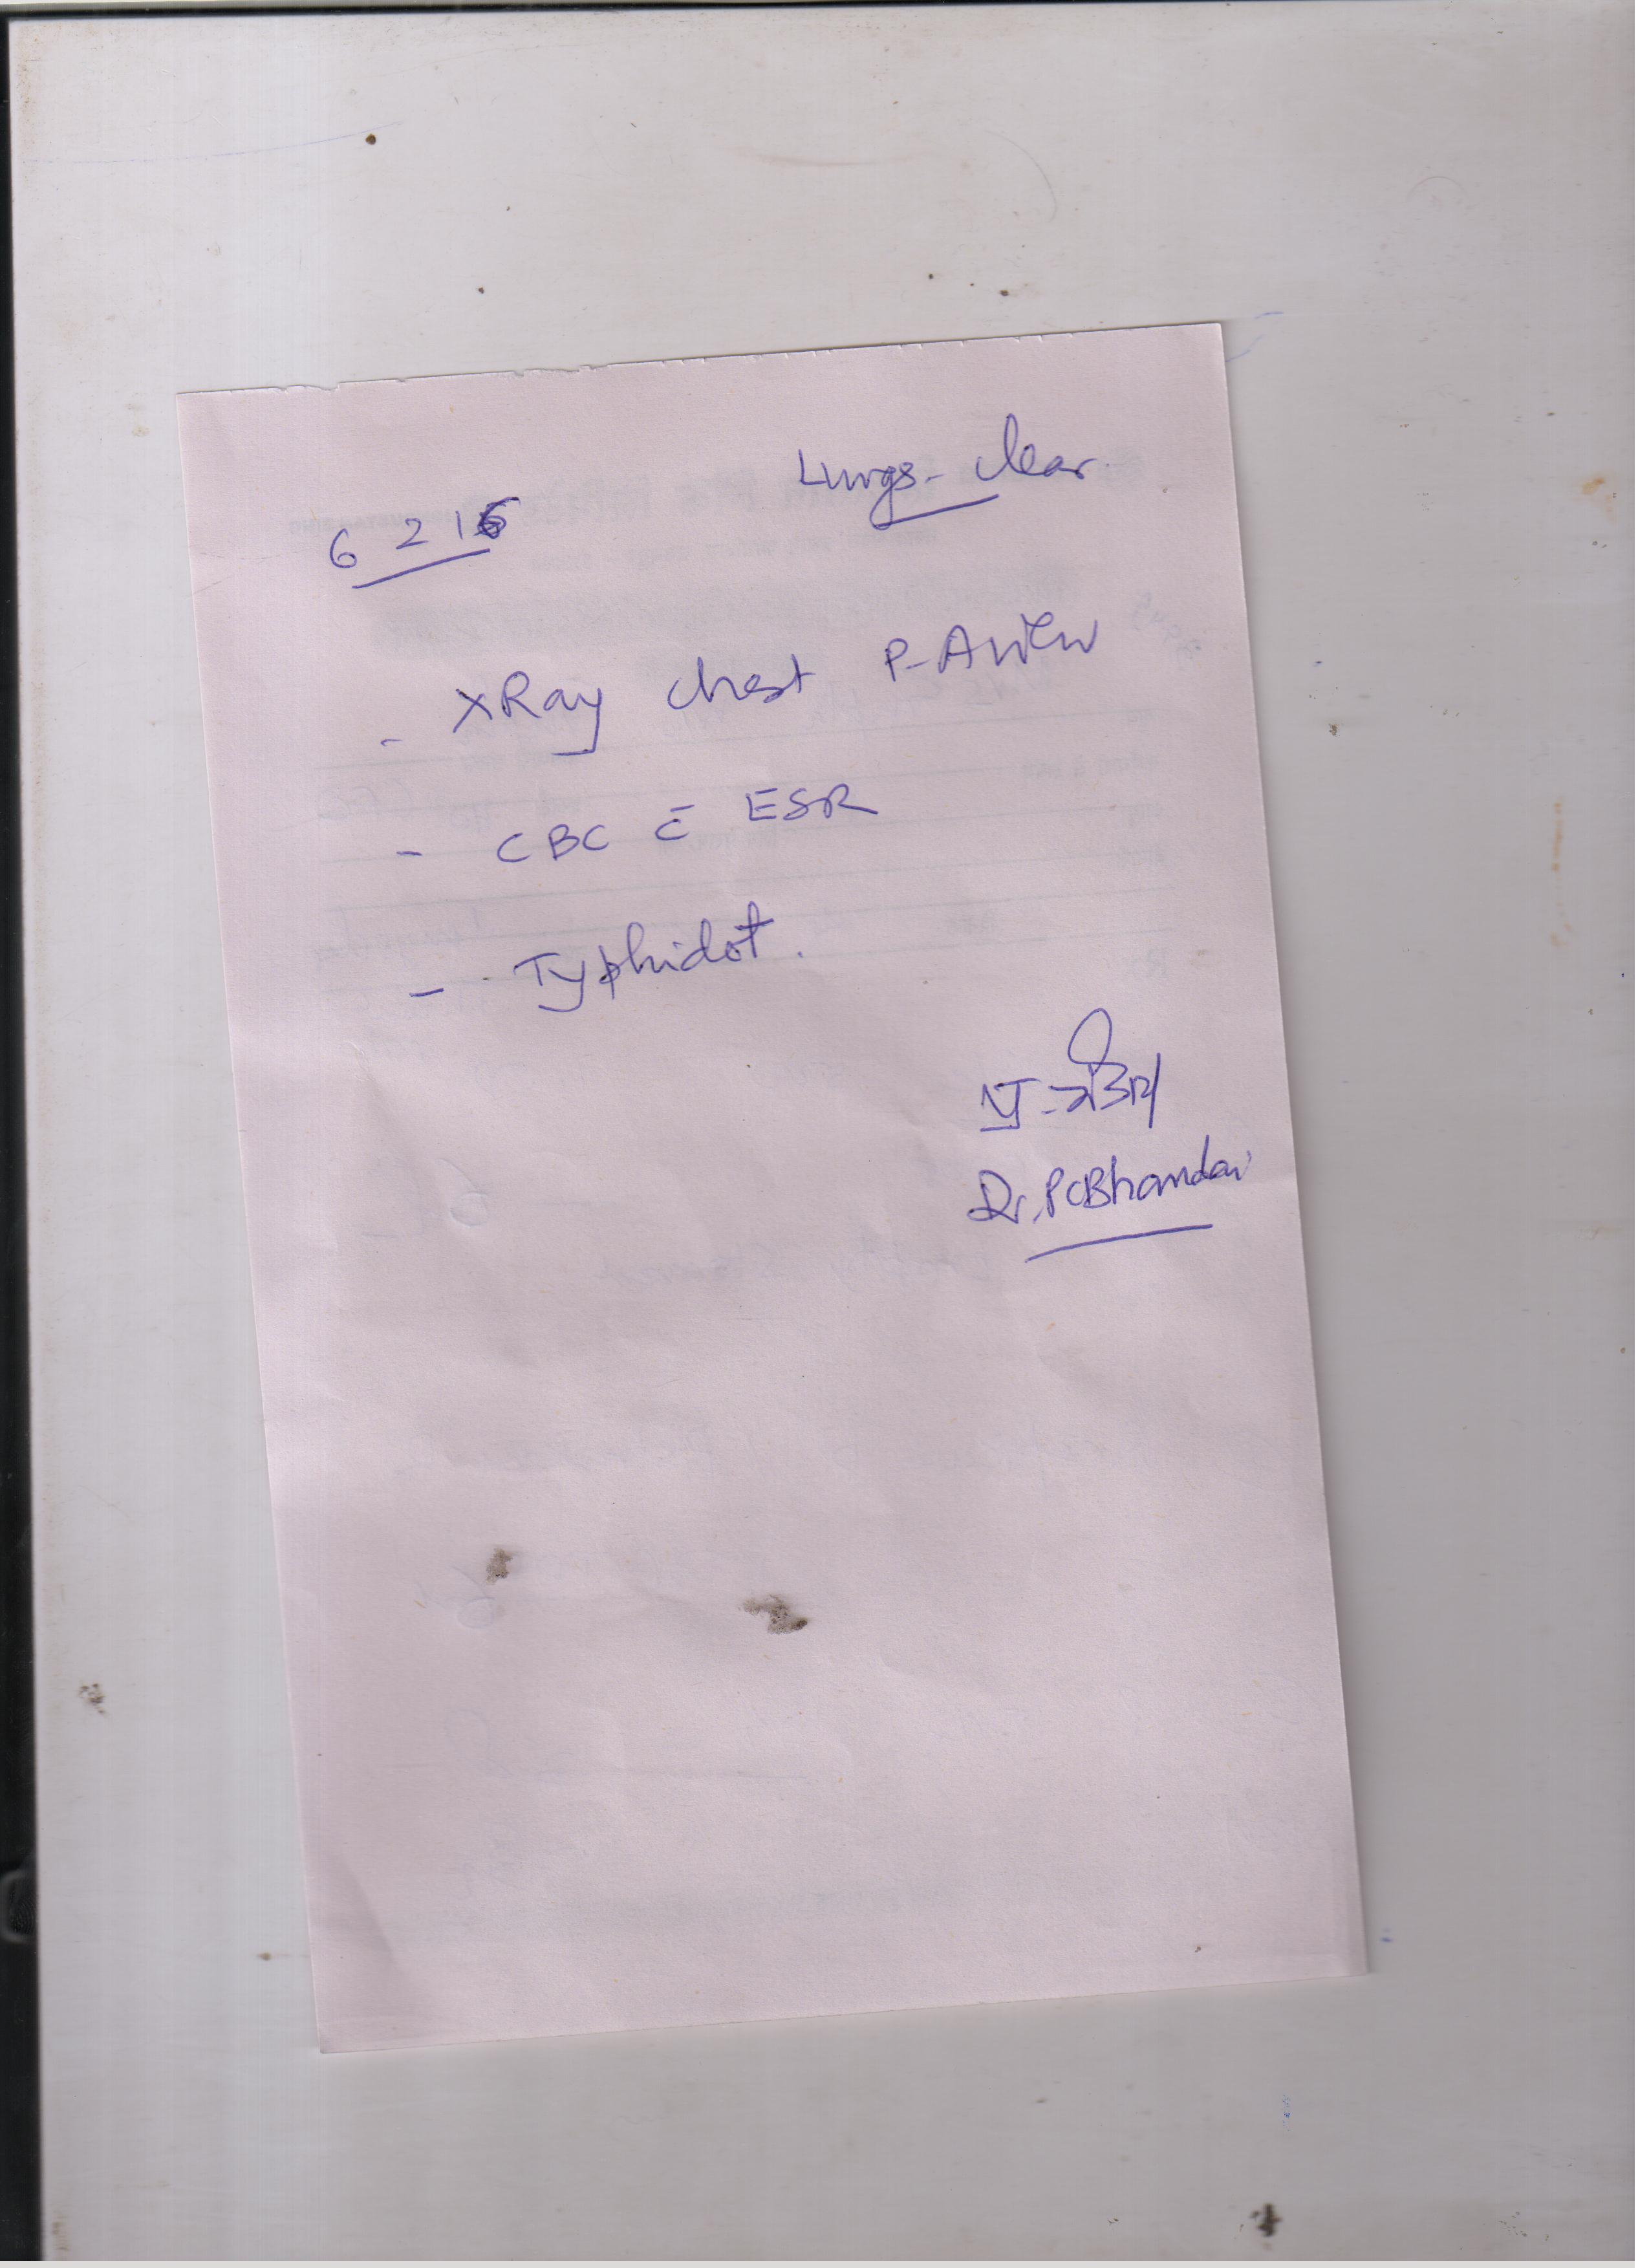 Lungs - clear.
6 2 16
- XRay chest P-A view
- CBC c̄ ESR
- Typhidot.
Dr. PCBhandari